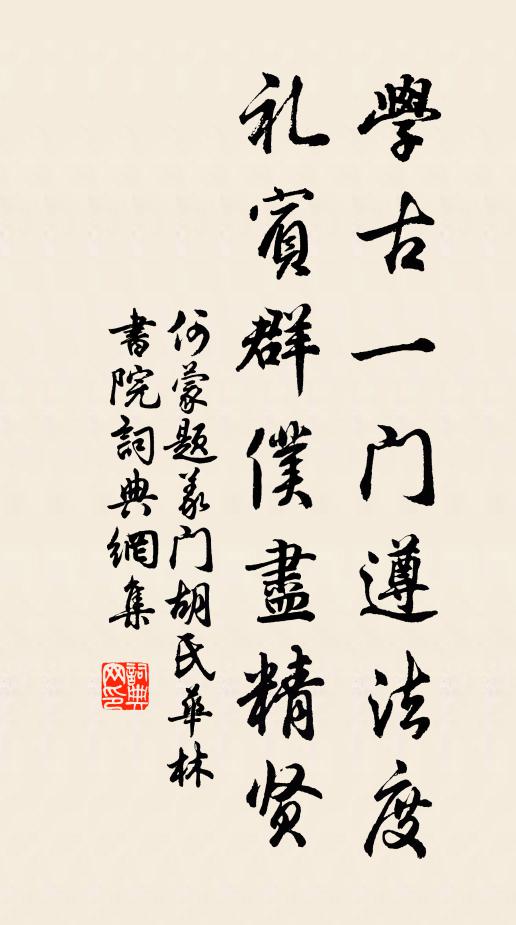 學古一门遵法度
礼賓群僕盡精贤
何蒙题义门胡氏华林
書院詞典網集
詞典网印